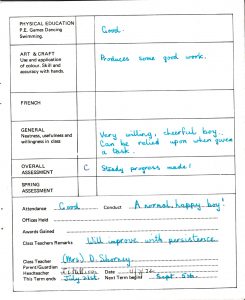 PHYSICAL EDUCATION
P.E. Games Dancing
Swimming.
Good.
ART & CRAFT
Use and application
of colour. Skill and
accuracy with hands.
Produces some good work.
FRENCH
GENERAL
Neatness, usefulness and
willingness in class
Very willing, cheerful boy.
Can be relied upon when given
a task.
OVERALL
ASSESSMENT
C Steady progress made.
SPRING
ASSESSMENT
Attendance Good Conduct A normal, happy boy!
Offices Held
Awards Gained
Class Teachers Remarks Will improve with persistence.
Class Teacher (Mrs) D.
Parent/Guardian
Headteacher Date
This term ends July 21st Next Term begins Sept. 5th.